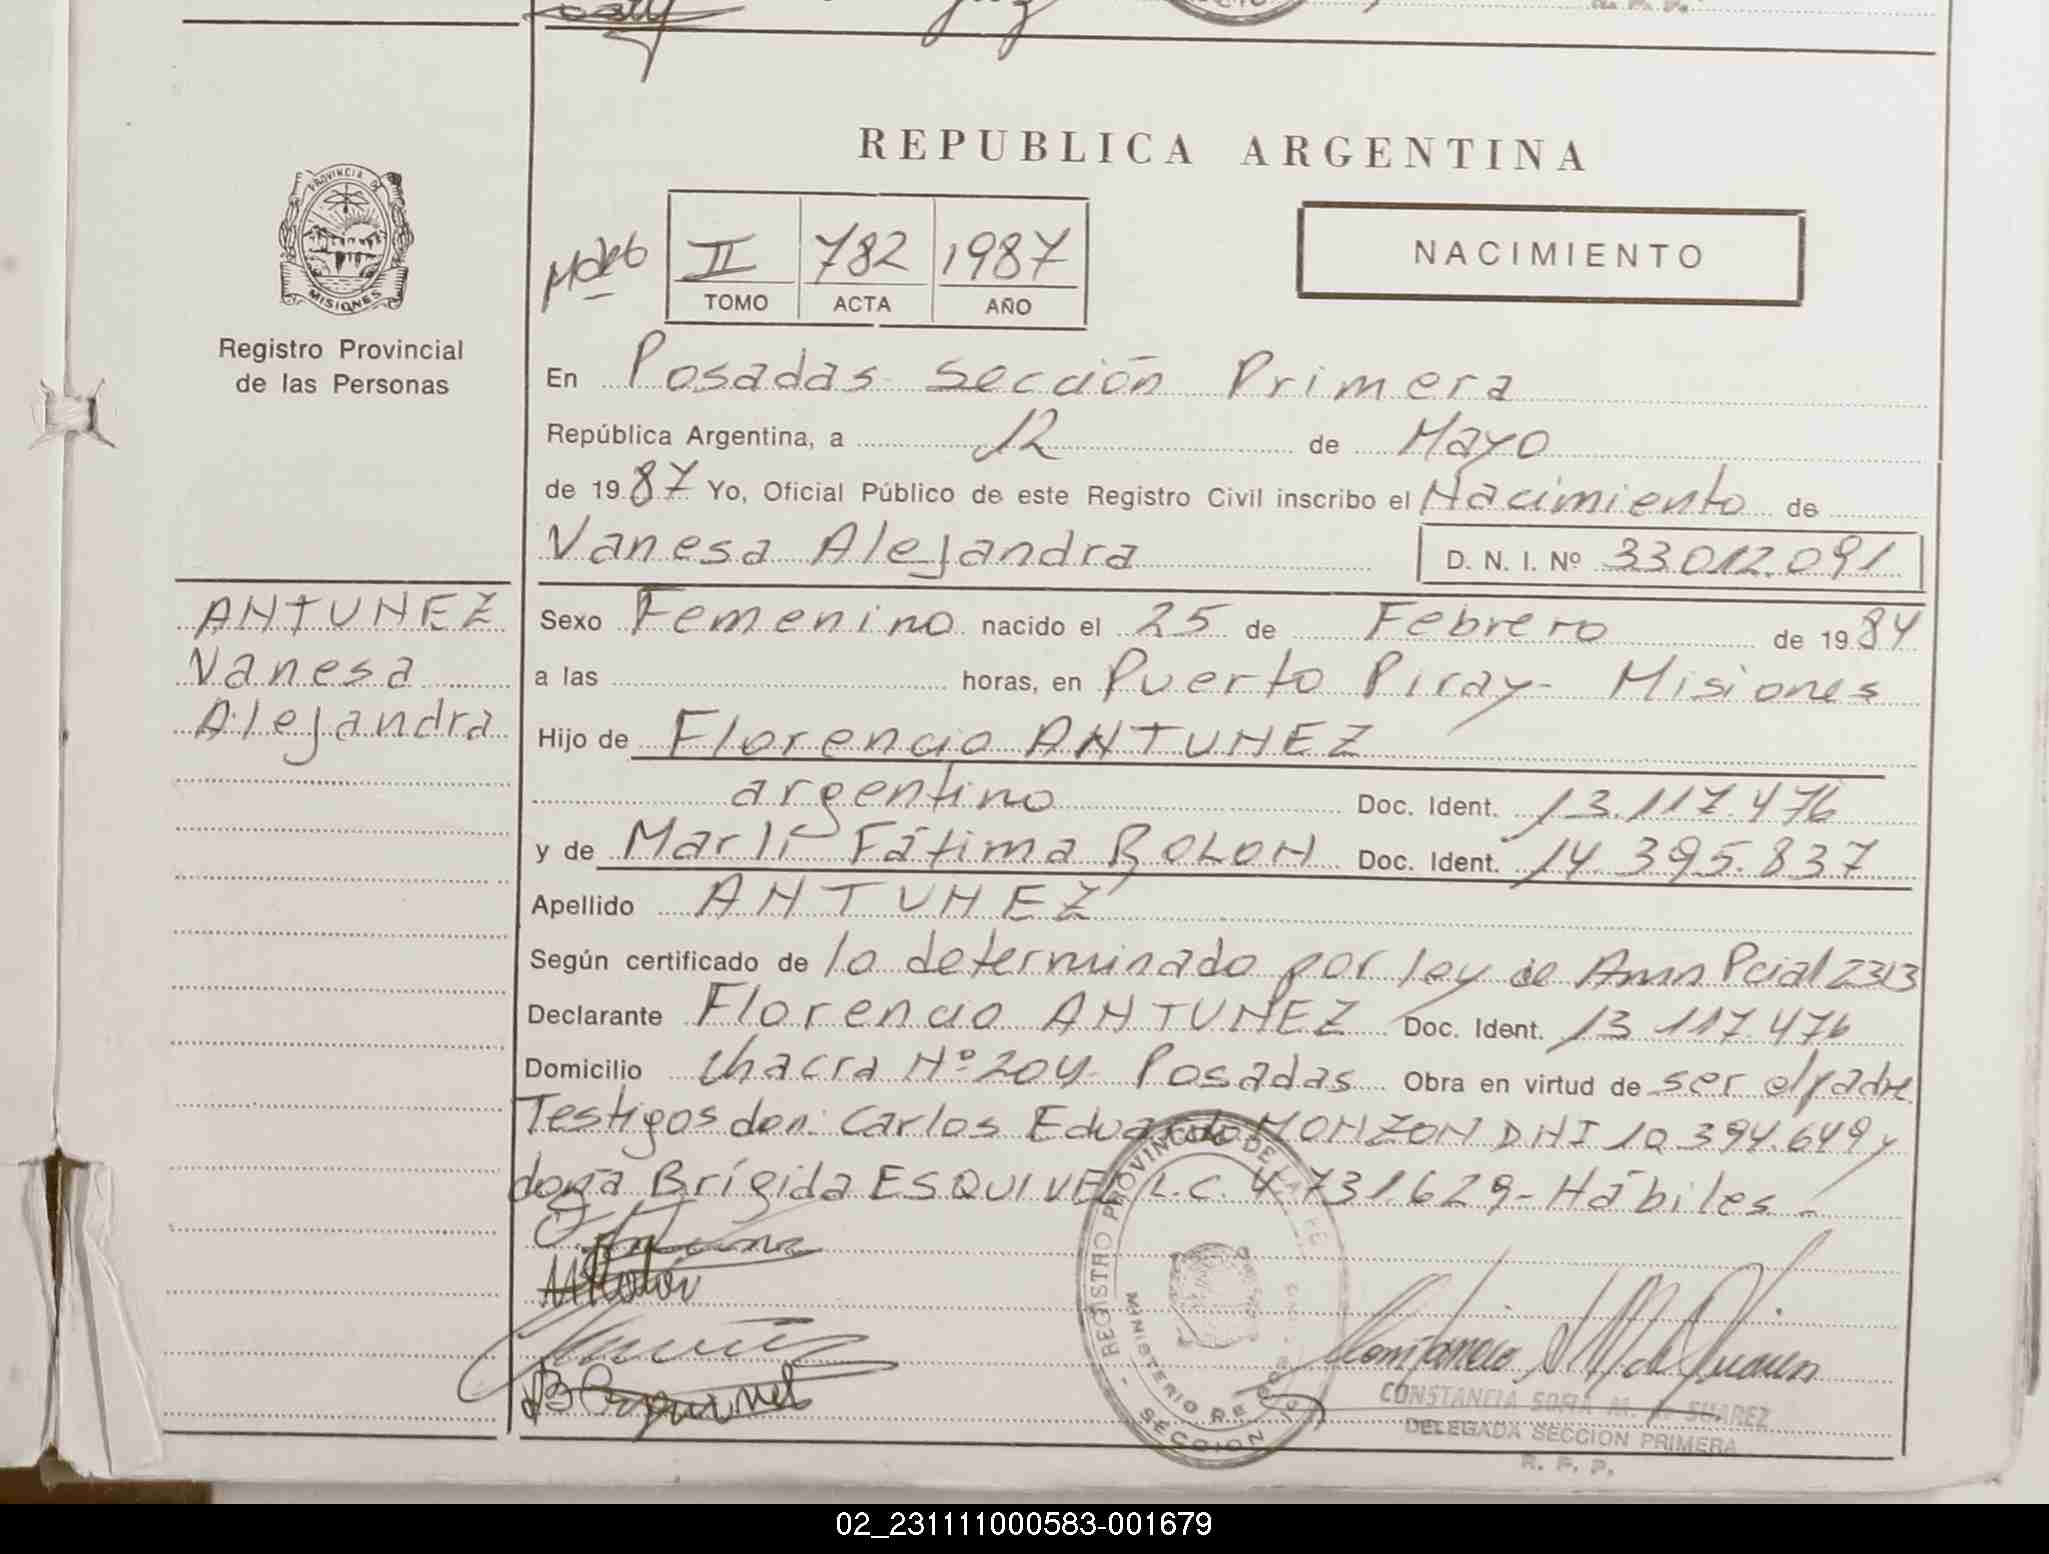 REPUBLICA ARGENTINA
PROVINCIA DE
MISIONES
Registro Provincial
de las Personas
II 782 1987
TOMO ACTA AÑO
NACIMIENTO
En Posadas Sección Primera
República Argentina, a 12 de Mayo
de 1987 Yo, Oficial Público de este Registro Civil inscribo el Nacimiento de
Vanesa Alejandra D. N. I. Nº 33.012.091
ANTUNEZ
Vanesa
Alejandra
Sexo Femenino nacido el 25 de Febrero de 1984
a las horas, en Puerto Piray - Misiones
Hijo de Florencio ANTUNEZ
argentino Doc. Ident. 13.117.476
y de Marli Fátima ROLON Doc. Ident. 14.395.837
Apellido ANTUNEZ
Según certificado de lo determinado por ley de Amn Pcial 2313
Declarante Florencio ANTUNEZ Doc. Ident. 13.117.476
Domicilio Chacra Nº 204 - Posadas Obra en virtud de ser el padre
Testigos don: Carlos Eduardo MONZON DNI 10.394.649 y
doña Brígida ESQUIVEL L.C. 4.731.629 - Hábiles -
REGISTRO PROVINCIAL DE
MINISTERIO
SECCION
CONSTANCIA SOFIA M. SUAREZ
DELEGADA SECCION PRIMERA
R. P. P.
02_231111000583-001679